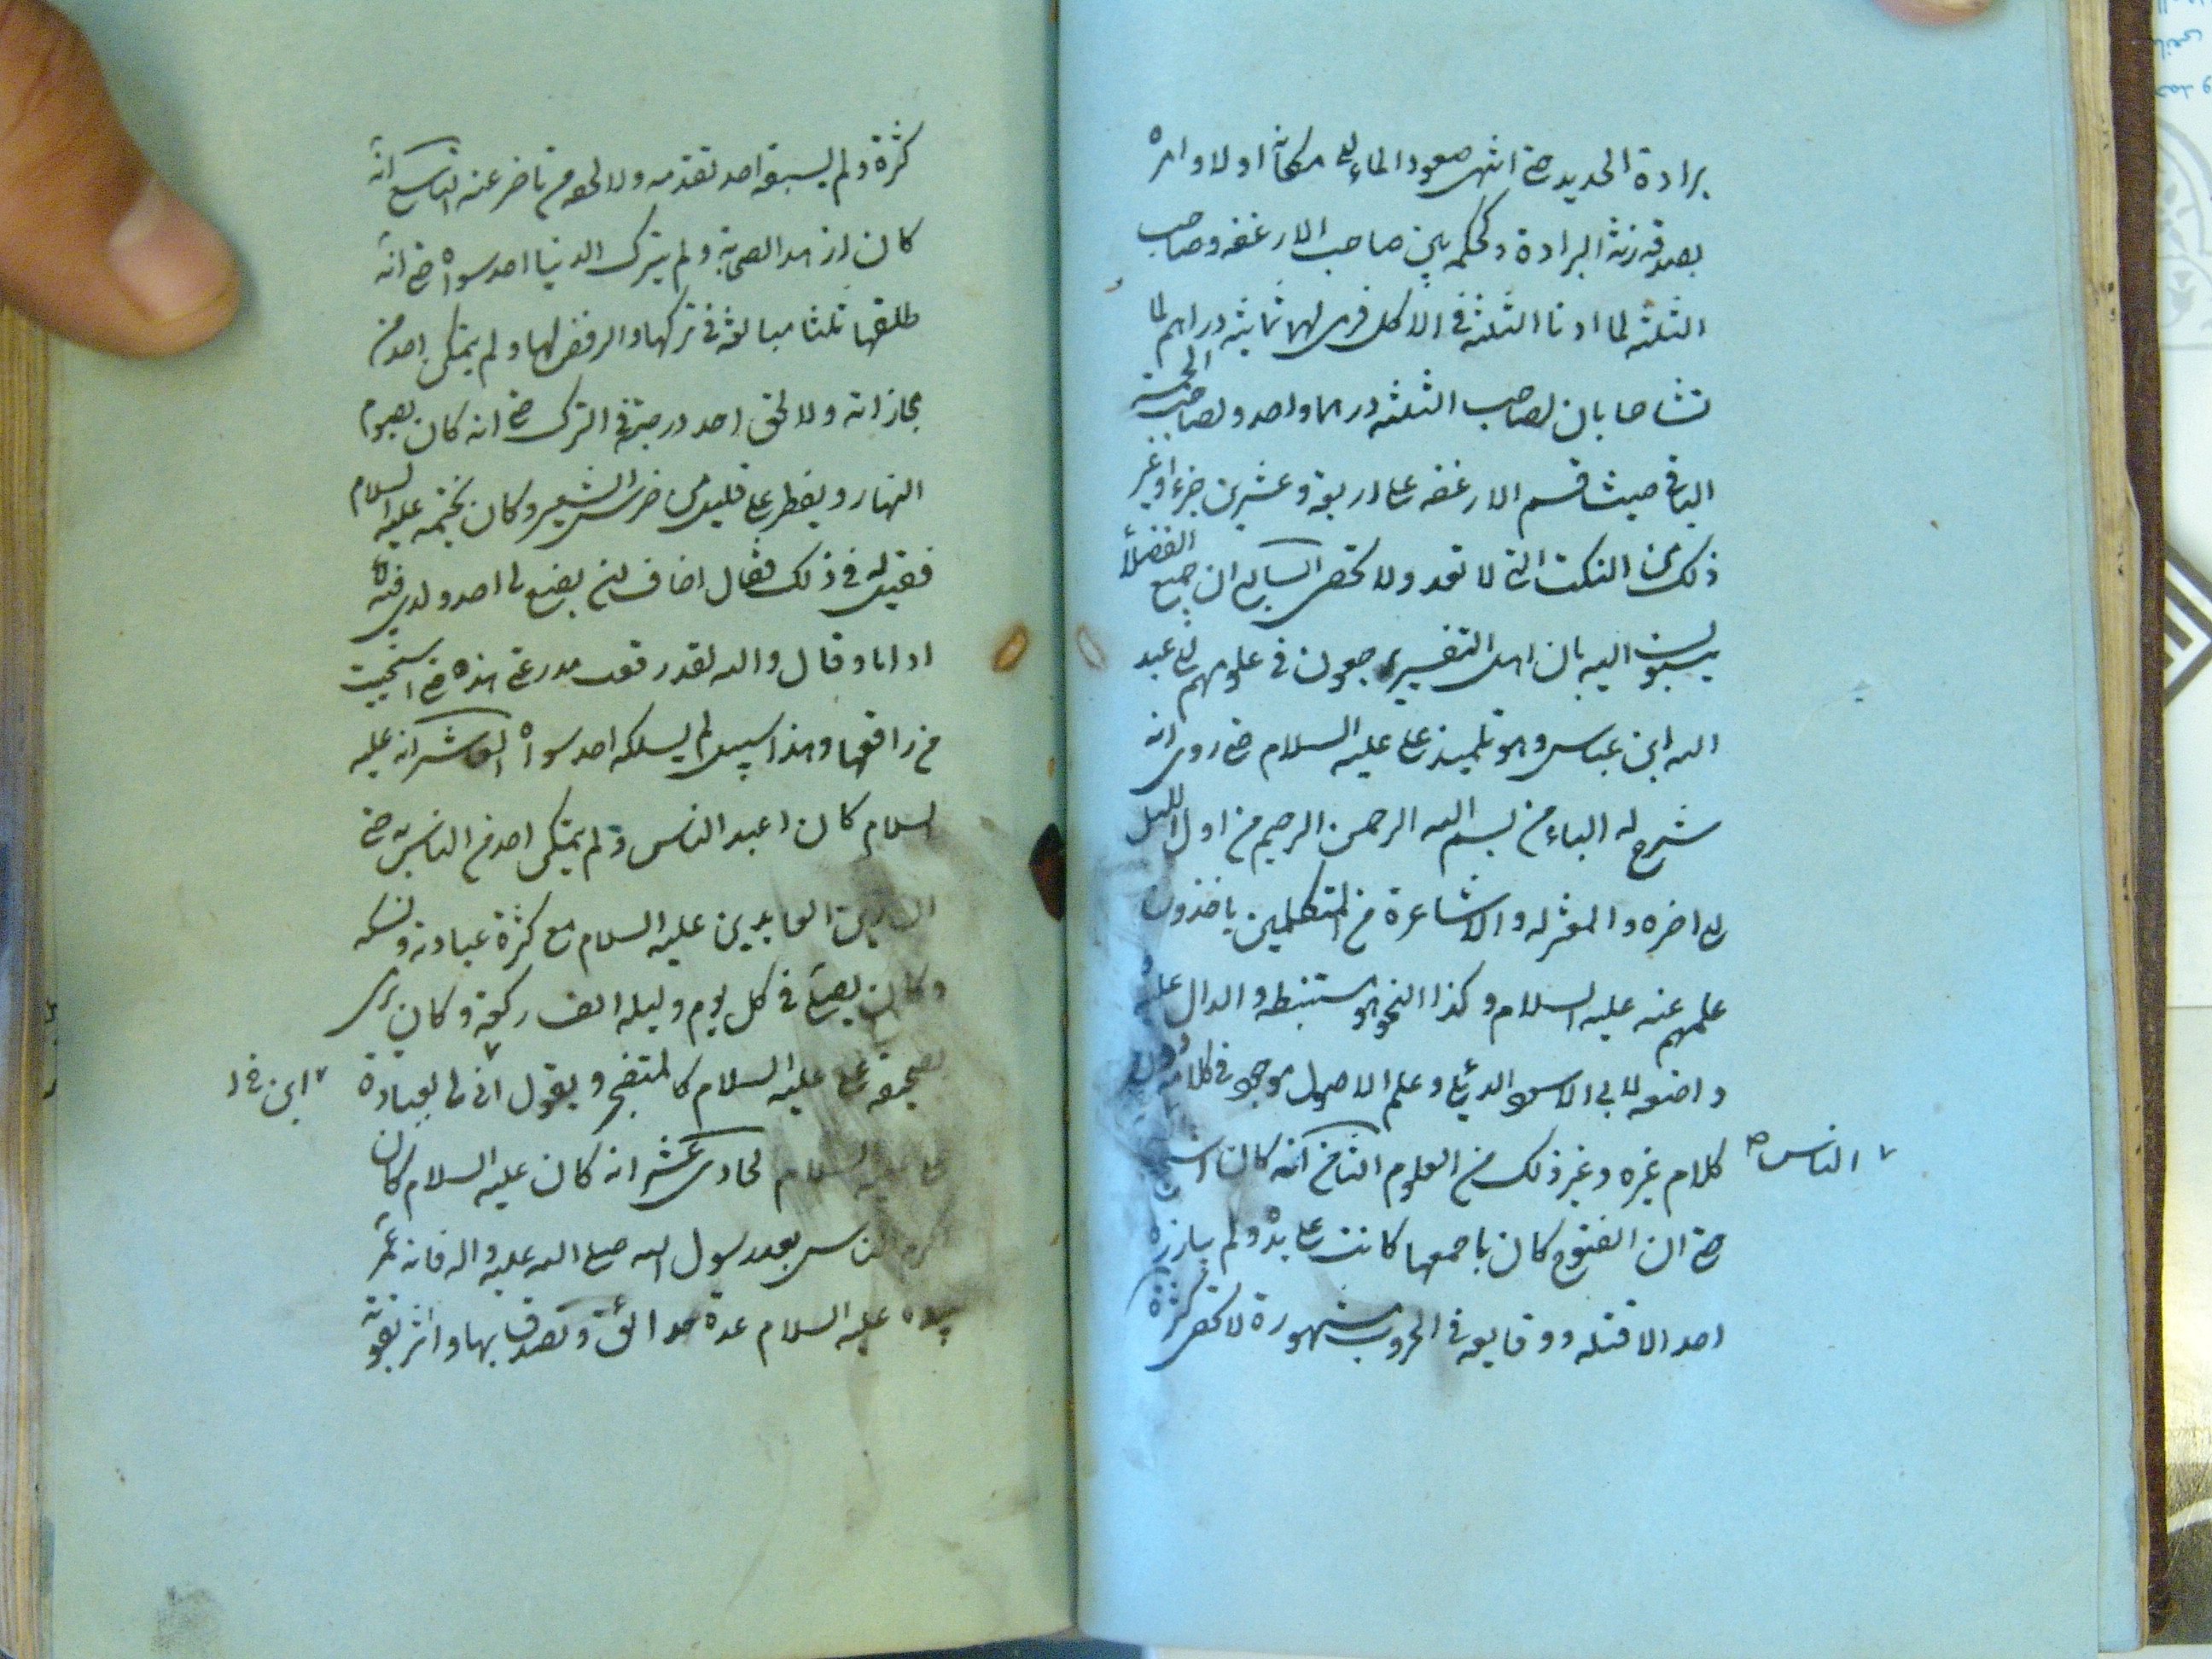 برادة الحديد حتى انتهى صعود الماء الى مكانه اولا وامره
بصدقه زنة البرادة وكحكمه بين صاحب الارغفه وصاحب
الثلثه لما اذنا الثلثة في الاكل فرمى لهما ثمانية دراهم لما
تشاحا بان لصاحب الثلثه درهما واحد ولصاحب الخمسة
الباقي حيث قسم الارغفه على اربعة وعشرين جزءا وغير
ذلك من النكت التي لا تعد ولا تحصى السابع ان جميع الفضلاء
ينسبون اليه بان اهل التفسير يرجعون في علومهم الى عبد
الله ابن عباس وهو تلميذ علي عليه السلام حتى روى انه
شرح له الباء من بسم الله الرحمن الرحيم من اول الليل
الى اخره والمعتزله والاشاعرة من المتكلمين ياخذون
علمهم عنه عليه السلام وكذا النحو هو مستنبطه والدال عليه
واضعه لابي الاسود الدئلي وعلم الاصول موجود في كلامه دون
كلام غيره وغير ذلك من العلوم الثامن انه كان اشجع
الناس صح
حتى ان الفتوح كان باجمعها كانت على يده ولم يبارزه
احد الا قتله ووقايعه في الحروب مشهورة لا تحصى كثرة
كثرة ولم يسبقه احد تقدمه ولا لحقه من تاخر عنه التاسع انه
كان ازهد الصحابة ولم يترك الدنيا احد سواه حتى انه
طلقها ثلثا مبالغة في تركها والرفض لها ولم يتمكن احد من
مجازاته ولا لحق احد درجته في الترك حتى انه كان يصوم
النهار ويفطر على قليل من خرش الشعير وكان يختمه عليه السلام
فقيل له في ذلك فقال اخاف ان يضع لي احد ولدي فيه
اداما وقال والله لقد رقعت مدرعتي هذه حتى استحييت
من راقعها وهذا سبيل لم يسلكه احد سواه العاشر انه عليه
السلام كان اعبد الناس ولم يتمكن احد من الناس حتى
ان زين العابدين عليه السلام مع كثرة عبادته ونسكه
وكان يصلي في كل يوم وليله الف ركعة وكان يرى
بصحيفة علي عليه السلام كالمتضجر ويقول اني لي بعبادة
علي عليه السلام الحادي عشر انه كان عليه السلام كان
اكرم الناس بعد رسول الله صلى الله عليه واله فانه عمر
بيده عليه السلام عدة حدائق وتصدق بها واثر بقوته